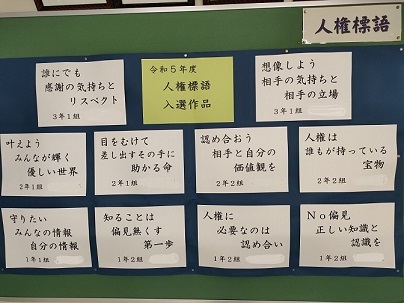 人権標語
誰にでも
感謝の気持ちと
リスペクト
3年1組
令和5年度
人権標語
入選作品
想像しよう
相手の気持ちと
相手の立場
3年1組
叶えよう
みんなが輝く
優しい世界
2年1組
目をむけて
差し出すその手に
助かる命
2年1組
認め合おう
相手と自分の
価値観を
2年2組
人権は
誰もが持っている
宝物
2年2組
守りたい
みんなの情報
自分の情報
1年1組
知ることは
偏見無くす
第一歩
1年2組
人権に
必要なのは
認め合い
1年2組
No偏見
正しい知識と
認識を
1年2組